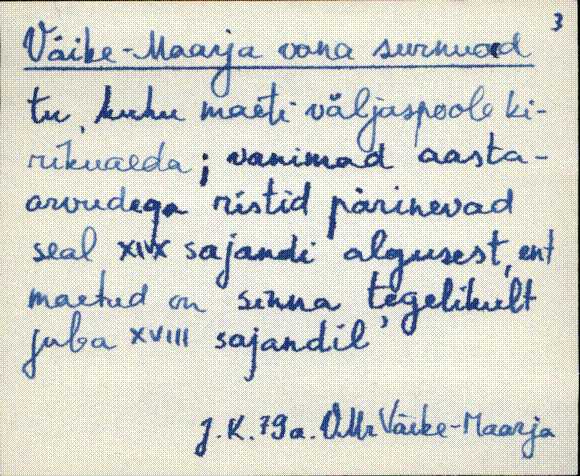 3
Väike-Maarja vana surnuaed
tu, kuhu maeti väljaspoole ki-
rikuaeda; vanimad aasta-
arvudega ristid pärinevad
seal XIX sajandi algusest, ent
maetud on sinna tegelikult
juba XVIII sajandil
J.K. 79a. Väike-Maarja